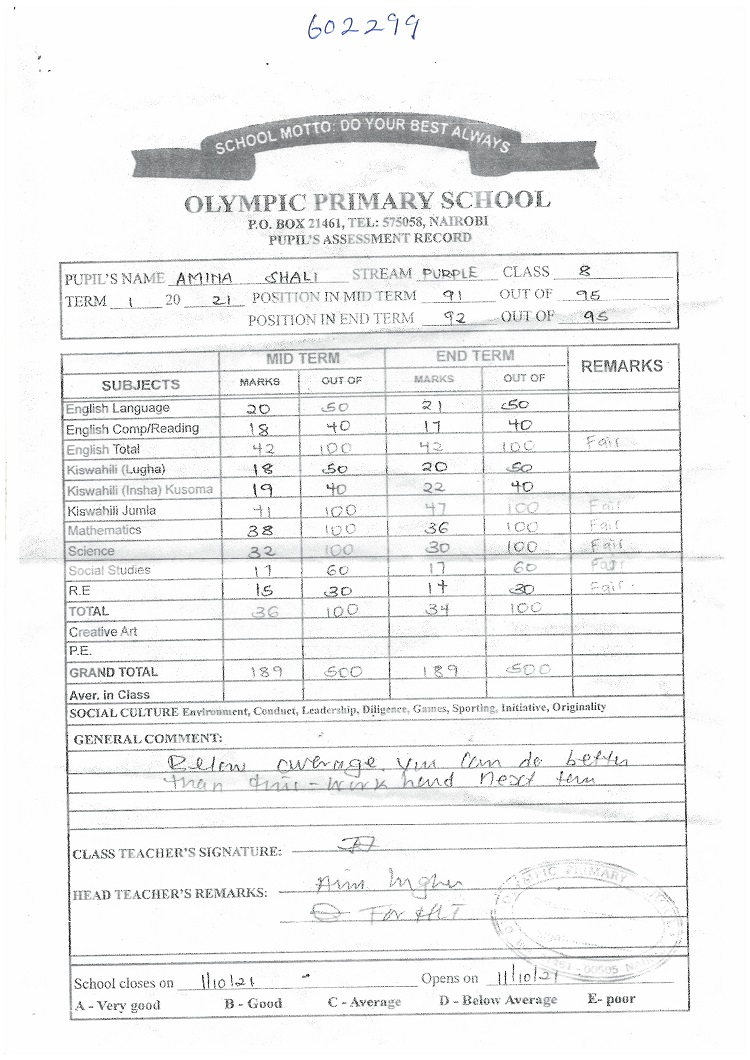 602299
SCHOOL MOTTO: DO YOUR BEST ALWAYS
OLYMPIC PRIMARY SCHOOL
P.O. BOX 21461, TEL: 575058, NAIROBI
PUPIL'S ASSESSMENT RECORD
PUPIL'S NAME AMINA SHALI STREAM PURPLE CLASS 8
TERM 1 20 21 POSITION IN MID TERM 91 OUT OF 95
POSITION IN END TERM 92 OUT OF 95
MID TERM END TERM REMARKS
SUBJECTS MARKS OUT OF MARKS OUT OF
English Language 20 50 21 50
English Comp/Reading 18 40 17 40
English Total 42 100 42 100 Fair
Kiswahili (Lugha) 18 50 20 50
Kiswahili (Insha) Kusoma 19 40 22 40
Kiswahili Jumla 41 100 47 100 Fair
Mathematics 38 100 36 100 Fair
Science 32 100 30 100 Fair
Social Studies 17 60 17 60 Fair
R.E 15 30 17 30 Fair
TOTAL 36 100 34 100
Creative Art
P.E.
GRAND TOTAL 189 500 189 500
Aver. in Class
SOCIAL CULTURE Environment, Conduct, Leadership, Diligence, Games, Sporting, Initiative, Originality
GENERAL COMMENT:
Below average. You can do better
than this - work hard next term
CLASS TEACHER'S SIGNATURE:
HEAD TEACHER'S REMARKS: Aim higher
For H/T
OLYMPIC PRIMARY
00505
School closes on 1/10/21 Opens on 11/10/21
A - Very good B - Good C - Average D - Below Average E- poor